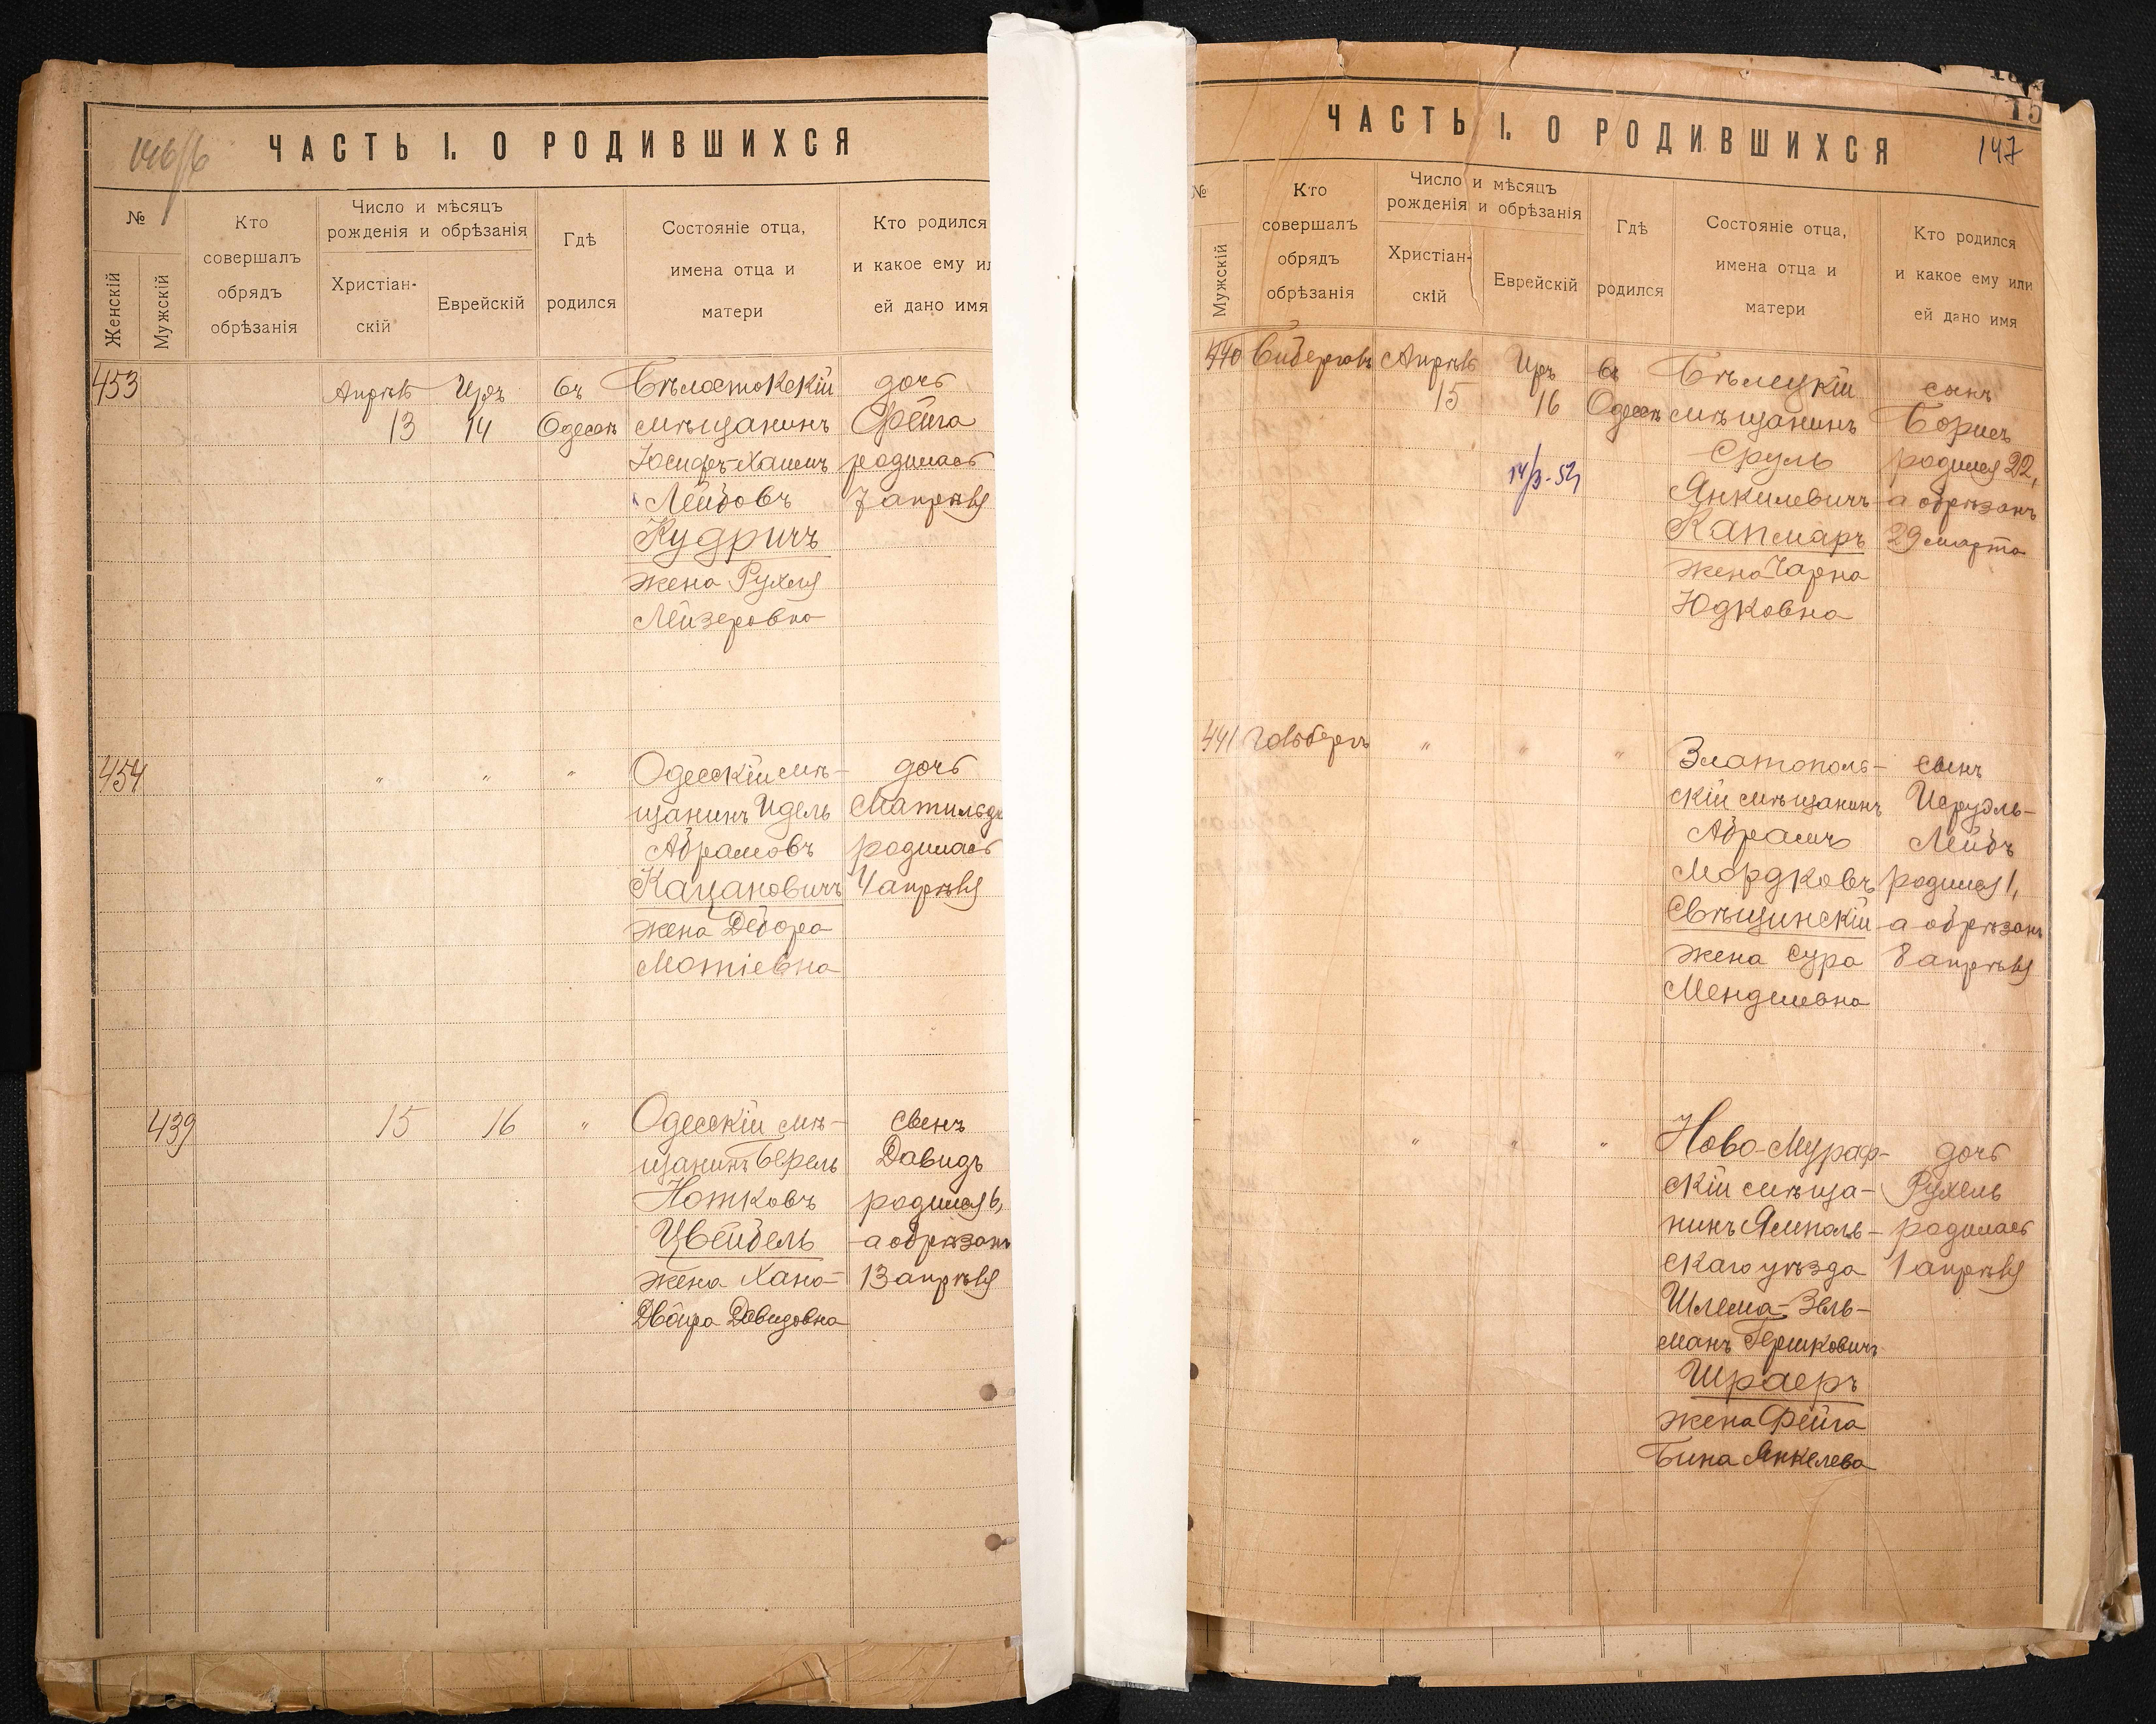 146/б
ЧАСТЬ I. О РОДИВШИХСЯ
№
Женскій
Мужскій
Кто
совершалъ
обрядъ
обрѣзанія
Число и мѣсяцъ
рожденія и обрѣзанія
Христіан-
скій
Еврейскій
Гдѣ
родился
Состояніе отца,
имена отца и
матери
Кто родился
и какое ему ил
ей дано имя
453
Апрѣль
13
Иръ
14
Въ
Одессѣ
Бѣлостокскій
мѣщанинъ
Іосифъ-Хаимъ
Лейбовъ
Кудричъ
жена Рухля
Лейзеровна
дочь
Фейга
родилась
7 апрѣля
454
"
"
"
Одесскій мѣ-
щанинъ Идель
Абрамовъ
Кацановичъ
жена Дебора
Мотіевна
дочь
Матильда
родилась
4 апрѣля
439
15
16
"
Одесскій мѣ-
щанинъ Берель
Нотковъ
Цвейбель
жена Хана-
Двойра Давидовна
сынъ
Давидъ
родился 6,
а обрѣзанъ
13 апрѣля
15
147
ЧАСТЬ I. О РОДИВШИХСЯ
№
Мужскій
Кто
совершалъ
обрядъ
обрѣзанія
Число и мѣсяцъ
рожденія и обрѣзанія
Христіан-
скій
Еврейскій
Гдѣ
родился
Состояніе отца,
имена отца и
матери
Кто родился
и какое ему или
ей дано имя
440
Апрѣль
15
Иръ
16
Въ
Одессѣ
Бѣлецкій
мѣщанинъ
Сруль
Янкилевичъ
Капмаръ
жена Чарна
Юдковна
сынъ
Борисъ
родился 22,
а обрѣзанъ
29 марта
441
Гольбергъ
"
"
"
Златополь-
скій мѣщанинъ
Абрамъ
Мордковъ
Свѣщинскій
жена Сура
Менделевна
сынъ
Исруэль-
Лейбъ
родился 1,
а обрѣзанъ
8 апрѣля
"
"
"
Ново-Мураф-
скій мѣща-
нинъ Ямполь-
скаго уѣзда
Шлема-Зель-
манъ Гершковичъ
Шраеръ
жена Фейга
Бина Янкелева
дочь
Рухель
родилась
1 апрѣля